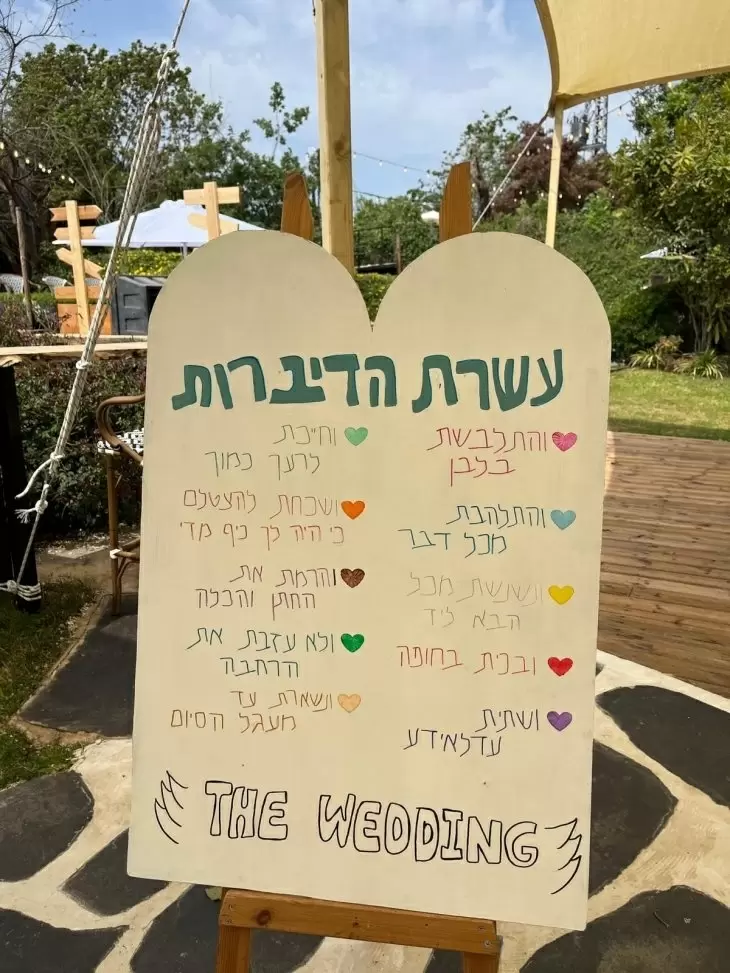 עשרת הדיברות
והתלבשת
בלבן
והתלהבת
מכל דבר
ונשנשת מכל
הבא ליד
ובכית בחופה
ושתית
עדלאידע
וחייכת
לרעך כמוך
ושכחת להצטלם
כי היה לך כיף מדי
והרמת את
החתן והכלה
ולא עזבת את
הרחבה
ונשארת עד
מעגל הסיום
THE WEDDING